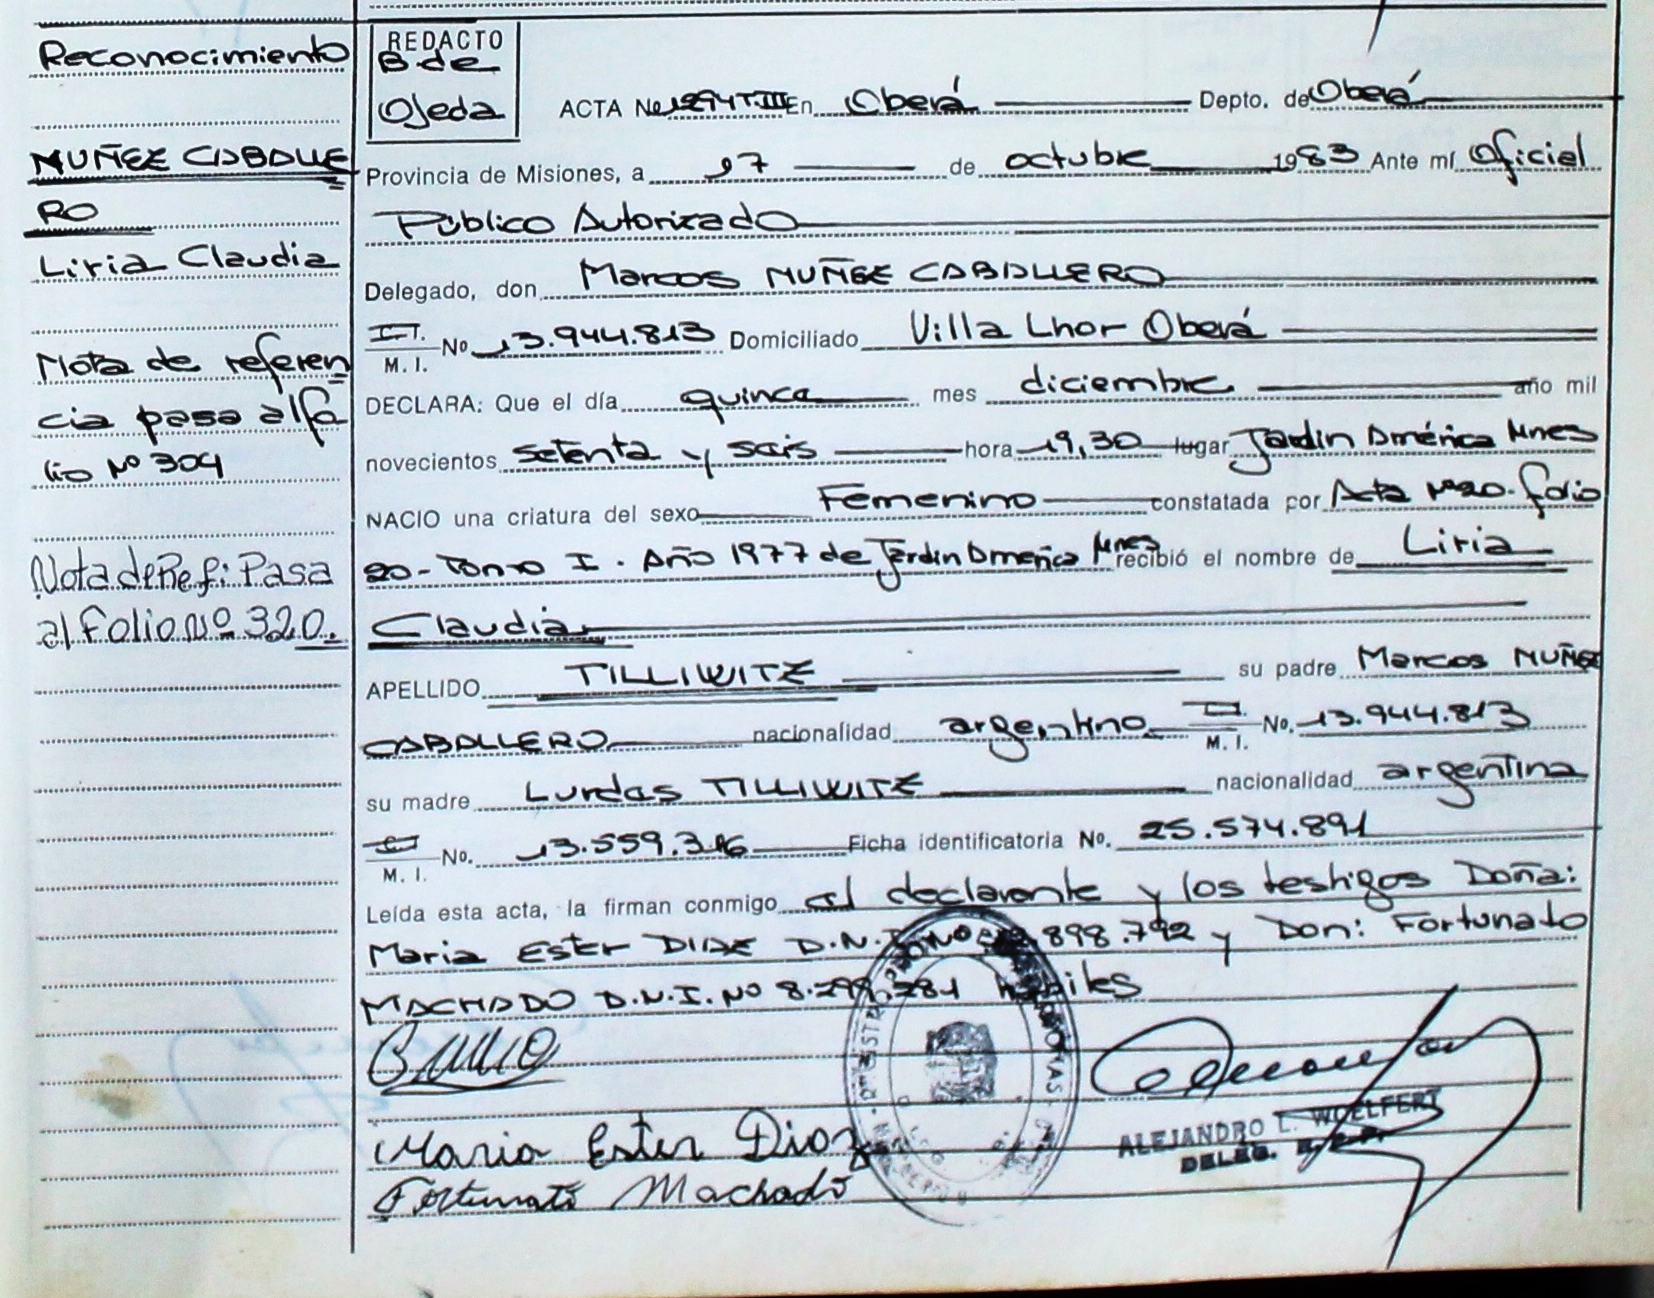 Reconocimiento
NUÑEZ CABALLE
RO
Liria Claudia
Nota de referen
cia pasa al fo
lio Nº 304
Nota de Ref: Pasa
al Folio Nº 320.
REDACTO
B de
Ojeda
ACTA No 1294 T.III En Oberá Depto. de Oberá
Provincia de Misiones, a 17 de octubre 1983 Ante mí Oficial
Público Autorizado
Delegado, don Marcos NUÑEZ CABALLERO
M. I. No 13.944.813 Domiciliado Villa Lhor Oberá
DECLARA: Que el día quince mes diciembre año mil
novecientos setenta y seis hora 19,30 lugar Jardin América Mnes
NACIO una criatura del sexo Femenino constatada por Acta Nº 20. folio
20 - Tomo I. Año 1977 de Jardin América Mnes recibió el nombre de Liria
Claudia
APELLIDO TILLIWITZ su padre Marcos NUÑEZ
CABALLERO nacionalidad argentino M. I. No. 13.944.813
su madre Lurdes TILLIWITZ nacionalidad argentina
M. I. No. 13.559.316 Ficha identificatoria No. 25.574.891
Leída esta acta, la firman conmigo el declarante y los testigos Doña:
Maria Ester DIAZ D.N.I. Nº 898.792 y Don: Fortunato
MACHADO D.N.I. Nº 8.299.281 hábiles
Maria Ester Diaz
Fortunato Machado
ALEJANDRO L. WOELFERT
DELEG.